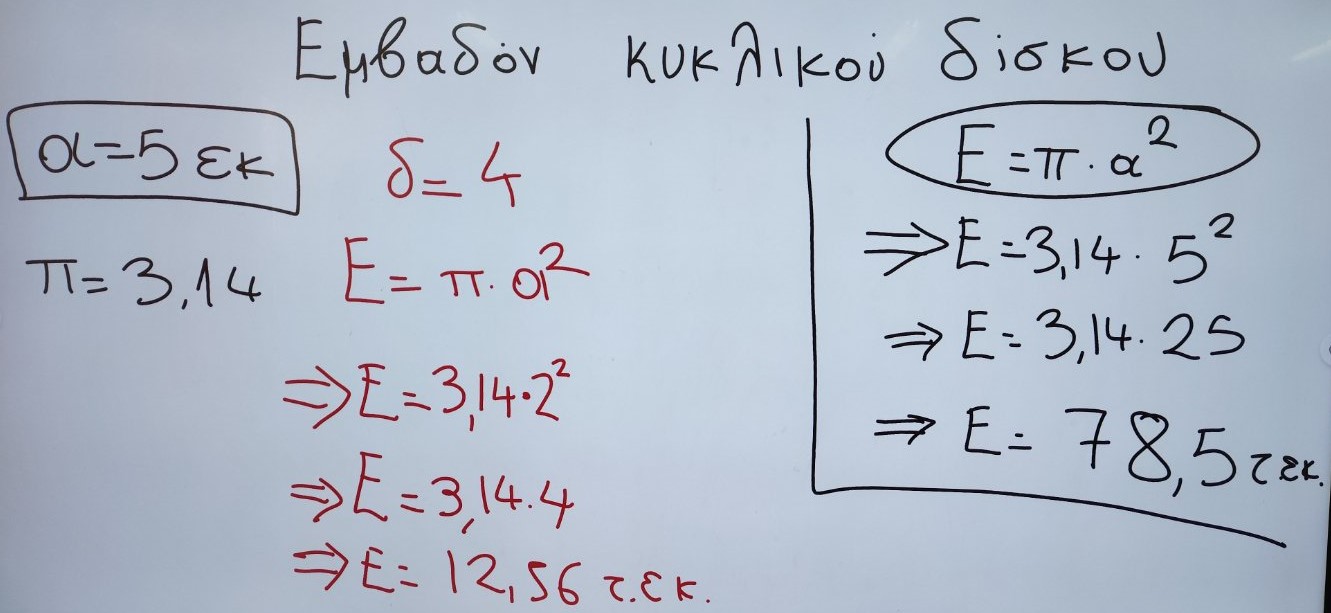 Εμβαδόν κυκλικού δίσκου
α=5 εκ
π=3,14
δ=4
Ε=π·α²
⇒Ε=3,14·2²
⇒Ε=3,14.4
⇒Ε=12,56 τ.εκ.
Ε=π·α²
⇒Ε=3,14·5²
⇒Ε=3,14·25
⇒Ε=78,5 τ εκ.